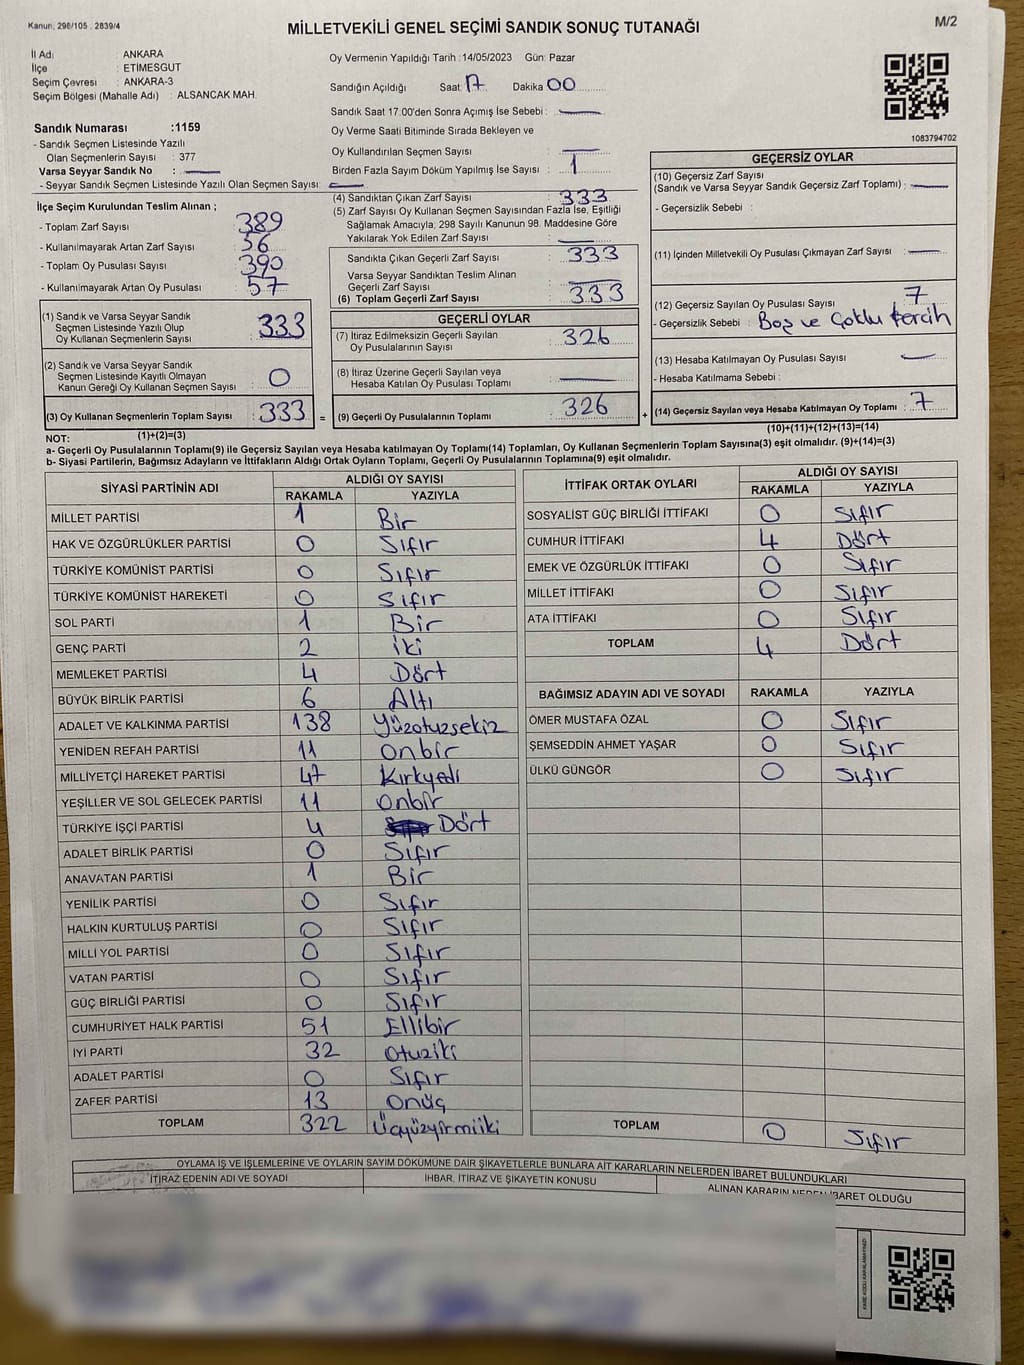 Kanun; 298/105 , 2839/4
MİLLETVEKİLİ GENEL SEÇİMİ SANDIK SONUÇ TUTANAĞI
M/2
İl Adı : ANKARA
İlçe : ETİMESGUT
Seçim Çevresi : ANKARA-3
Seçim Bölgesi (Mahalle Adı) : ALSANCAK MAH.
Oy Vermenin Yapıldığı Tarih :14/05/2023 Gün: Pazar
Sandığın Açıldığı Saat: 17 Dakika 00
Sandık Saat 17:00'den Sonra Açımış İse Sebebi : —
Oy Verme Saati Bitiminde Sırada Bekleyen ve
Oy Kullandırılan Seçmen Sayısı : —
Birden Fazla Sayım Döküm Yapılmış İse Sayısı : 1
1083794702
Sandık Numarası :1159
- Sandık Seçmen Listesinde Yazılı
Olan Seçmenlerin Sayısı : 377
Varsa Seyyar Sandık No : —
- Seyyar Sandık Seçmen Listesinde Yazılı Olan Seçmen Sayısı: —
İlçe Seçim Kurulundan Teslim Alınan ;
- Toplam Zarf Sayısı : 389
- Kullanılmayarak Artan Zarf Sayısı : 56
- Toplam Oy Pusulası Sayısı : 390
- Kullanılmayarak Artan Oy Pusulası : 57
(1) Sandık ve Varsa Seyyar Sandık
Seçmen Listesinde Yazılı Olup
Oy Kullanan Seçmenlerin Sayısı : 333
(2) Sandık ve Varsa Seyyar Sandık
Seçmen Listesinde Kayıtlı Olmayan
Kanun Gereği Oy Kullanan Seçmen Sayısı : 0
(3) Oy Kullanan Seçmenlerin Toplam Sayısı : 333 =
(1)+(2)=(3)
(4) Sandıktan Çıkan Zarf Sayısı : 333
(5) Zarf Sayısı Oy Kullanan Seçmen Sayısından Fazla İse, Eşitliği
Sağlamak Amacıyla, 298 Sayılı Kanunun 98. Maddesine Göre
Yakılarak Yok Edilen Zarf Sayısı : —
Sandıkta Çıkan Geçerli Zarf Sayısı : 333
Varsa Seyyar Sandıktan Teslim Alınan
Geçerli Zarf Sayısı : —
(6) Toplam Geçerli Zarf Sayısı : 333
GEÇERLİ OYLAR
(7) İtiraz Edilmeksizin Geçerli Sayılan
Oy Pusulalarının Sayısı : 326
(8) İtiraz Üzerine Geçerli Sayılan veya
Hesaba Katılan Oy Pusulası Toplamı : —
(9) Geçerli Oy Pusulalarının Toplamı : 326 +
GEÇERSİZ OYLAR
(10) Geçersiz Zarf Sayısı
(Sandık ve Varsa Seyyar Sandık Geçersiz Zarf Toplamı) : —
- Geçersizlik Sebebi :
(11) İçinden Milletvekili Oy Pusulası Çıkmayan Zarf Sayısı : —
(12) Geçersiz Sayılan Oy Pusulası Sayısı : 7
- Geçersizlik Sebebi : Boş ve Çoklu tercih
(13) Hesaba Katılmayan Oy Pusulası Sayısı : —
- Hesaba Katılmama Sebebi :
(14) Geçersiz Sayılan veya Hesaba Katılmayan Oy Toplamı : 7
(10)+(11)+(12)+(13)=(14)
NOT:
a- Geçerli Oy Pusulalarının Toplamı(9) ile Geçersiz Sayılan veya Hesaba katılmayan Oy Toplamı(14) Toplamları, Oy Kullanan Seçmenlerin Toplam Sayısına(3) eşit olmalıdır. (9)+(14)=(3)
b- Siyasi Partilerin, Bağımsız Adayların ve İttifakların Aldığı Ortak Oyların Toplamı, Geçerli Oy Pusulalarının Toplamına(9) eşit olmalıdır.
SİYASİ PARTİNİN ADI ALDIĞI OY SAYISI
RAKAMLA YAZIYLA
MİLLET PARTİSİ 1 Bir
HAK VE ÖZGÜRLÜKLER PARTİSİ 0 Sıfır
TÜRKİYE KOMÜNİST PARTİSİ 0 Sıfır
TÜRKİYE KOMÜNİST HAREKETİ 0 Sıfır
SOL PARTİ 1 Bir
GENÇ PARTİ 2 iki
MEMLEKET PARTİSİ 4 Dört
BÜYÜK BİRLİK PARTİSİ 6 Altı
ADALET VE KALKINMA PARTİSİ 138 Yüzotuzsekiz
YENİDEN REFAH PARTİSİ 11 onbir
MİLLİYETÇİ HAREKET PARTİSİ 47 Kırkyedi
YEŞİLLER VE SOL GELECEK PARTİSİ 11 onbir
TÜRKİYE İŞÇİ PARTİSİ 4 Dört
ADALET BİRLİK PARTİSİ 0 Sıfır
ANAVATAN PARTİSİ 1 Bir
YENİLİK PARTİSİ 0 Sıfır
HALKIN KURTULUŞ PARTİSİ 0 Sıfır
MİLLİ YOL PARTİSİ 0 Sıfır
VATAN PARTİSİ 0 Sıfır
GÜÇ BİRLİĞİ PARTİSİ 0 Sıfır
CUMHURİYET HALK PARTİSİ 51 Ellibir
İYİ PARTİ 32 otuziki
ADALET PARTİSİ 0 Sıfır
ZAFER PARTİSİ 13 onüç
TOPLAM 322 Üçyüzyirmiiki
İTTİFAK ORTAK OYLARI ALDIĞI OY SAYISI
RAKAMLA YAZIYLA
SOSYALİST GÜÇ BİRLİĞİ İTTİFAKI 0 Sıfır
CUMHUR İTTİFAKI 4 Dört
EMEK VE ÖZGÜRLÜK İTTİFAKI 0 Sıfır
MİLLET İTTİFAKI 0 Sıfır
ATA İTTİFAKI 0 Sıfır
TOPLAM 4 Dört
BAĞIMSIZ ADAYIN ADI VE SOYADI RAKAMLA YAZIYLA
ÖMER MUSTAFA ÖZAL 0 Sıfır
ŞEMSEDDİN AHMET YAŞAR 0 Sıfır
ÜLKÜ GÜNGÖR 0 Sıfır
TOPLAM 0 Sıfır
OYLAMA İŞ VE İŞLEMLERİNE VE OYLARIN SAYIM DÖKÜMÜNE DAİR ŞİKAYETLERLE BUNLARA AİT KARARLARIN NELERDEN İBARET BULUNDUKLARI
İTİRAZ EDENİN ADI VE SOYADI İHBAR, İTİRAZ VE ŞİKAYETİN KONUSU ALINAN KARARIN NEDEN İBARET OLDUĞU